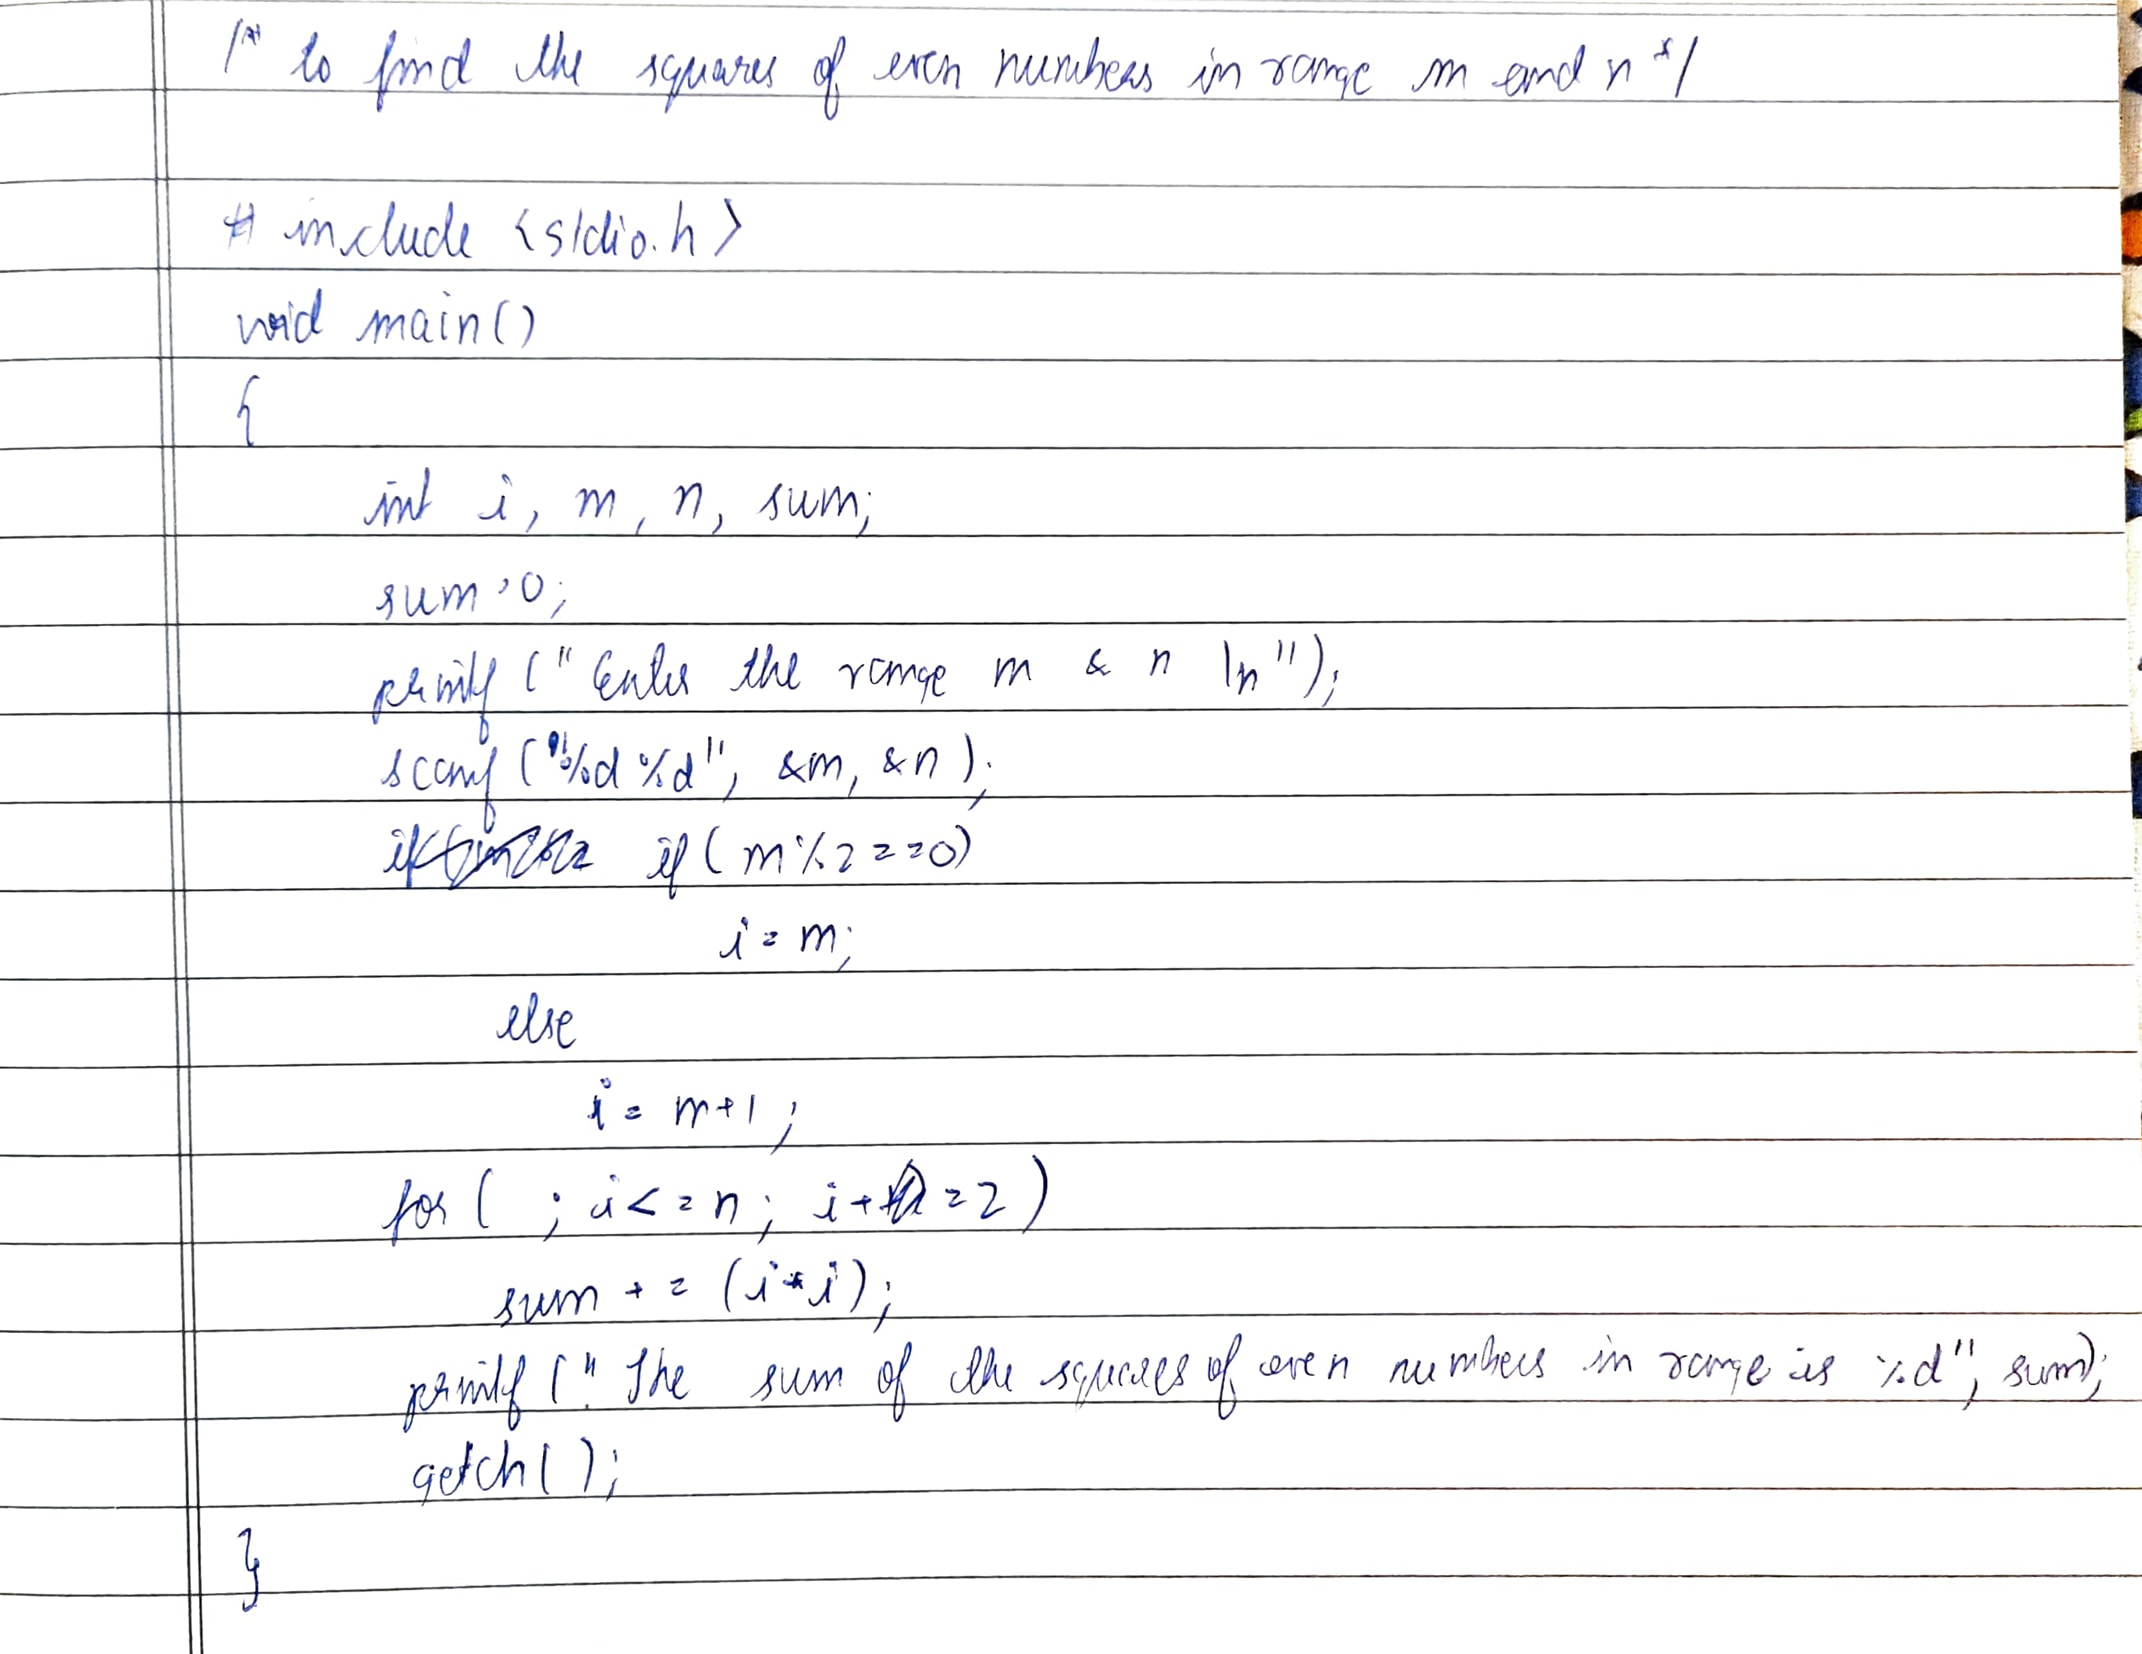 /* to find the squares of even numbers in range m and n */
# include <stdio.h>
void main()
{
int i, m, n, sum;
sum=0;
printf (" Enter the range m & n \n");
scanf ("%d %d", &m, &n);
if (m%2==0)
i=m;
else
i= m+1;
for ( ; i<=n; i+=2)
sum += (i*i);
printf (" The sum of the squares of even numbers in range is %d", sum);
getch( );
}